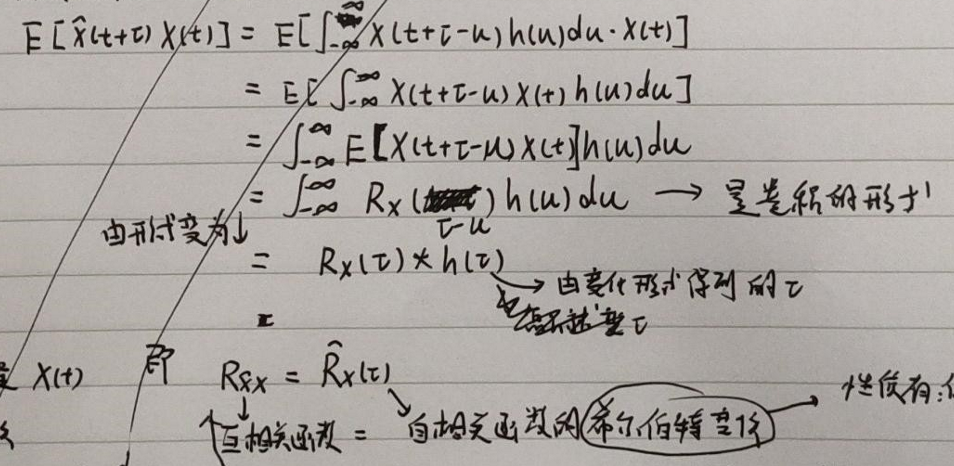 E[X̂(t+τ)X(t)] = E[∫_{-∞}^{∞} X(t+τ-u)h(u)du·X(t)]
= E[∫_{-∞}^{∞} X(t+τ-u)X(t)h(u)du]
= ∫_{-∞}^{∞} E[X(t+τ-u)X(t)]h(u)du
= ∫_{-∞}^{∞} R_X(τ-u)h(u)du → 是卷积的形式
由形式变为↓
= R_X(τ)*h(τ)
→ 由变化形式得到的τ
X(t) 即 R_{X̂X} = R̂_X(τ)
互相关函数 = 自相关函数的希尔伯特变换 → 性质有: